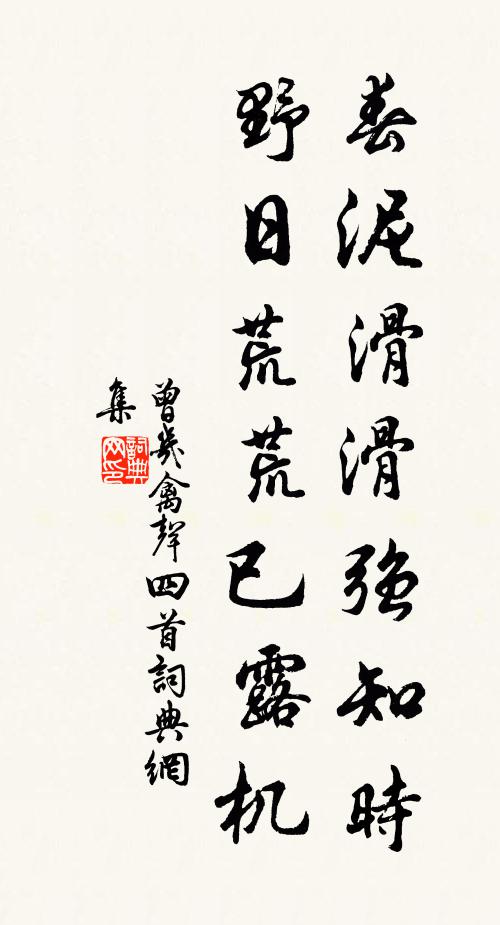 春泥滑滑強知時
野日荒荒已露机
曾幾禽聲四首詞典網
集
詞典
网印